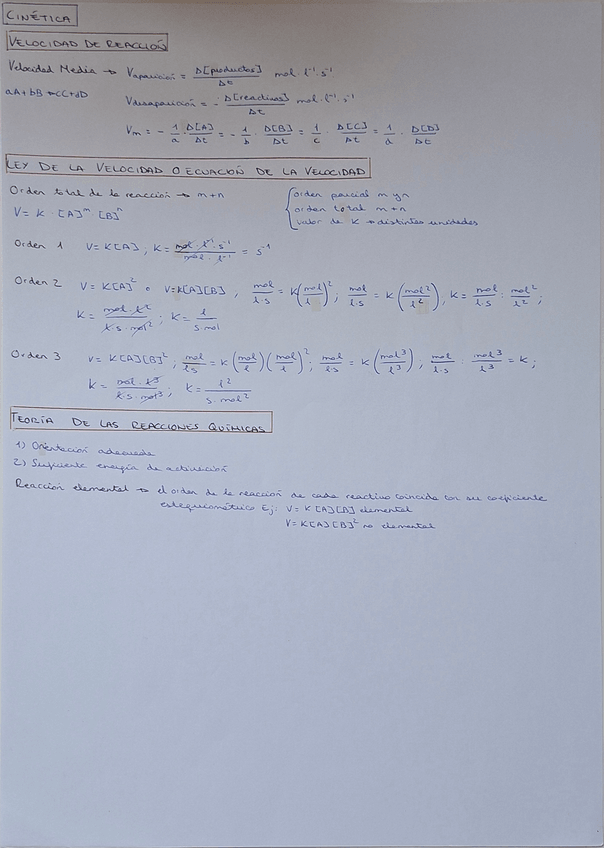 CINÉTICA
VELOCIDAD DE REACCIÓN
Velocidad Media → Vaparición = Δ[productos]/Δt mol · l⁻¹ · s⁻¹
aA + bB → cC + dD
Vdesaparición = - Δ[reactivos]/Δt mol · l⁻¹ · s⁻¹
Vm = - 1/a · Δ[A]/Δt = - 1/b · Δ[B]/Δt = 1/c · Δ[C]/Δt = 1/d · Δ[D]/Δt
LEY DE LA VELOCIDAD O ECUACIÓN DE LA VELOCIDAD
Orden total de la reacción → m+n
V = K · [A]ᵐ · [B]ⁿ
{ orden parcial m y n
orden total m+n
valor de K → distintas unidades
Orden 1 V = K[A] , K = mol · l⁻¹ · s⁻¹ / mol · l⁻¹ = s⁻¹
Orden 2 V = K[A]² o V = K[A][B] , mol/l·s = K(mol/l)² ; mol/l·s = K(mol²/l²) , K = mol/l·s : mol²/l² ;
K = mol · l²/l · s · mol² ; K = l/s·mol
Orden 3 V = K[A][B]² ; mol/l·s = K(mol/l)(mol/l)² ; mol/l·s = K(mol³/l³) ; mol/l·s : mol³/l³ = K ;
K = mol · l³/l · s · mol³ ; K = l²/s · mol²
TEORÍA DE LAS REACCIONES QUÍMICAS
1) Orientación adecuada
2) Suficiente energía de activación
Reacción elemental → el orden de la reacción de cada reactivo coincide con su coeficiente
estequiométrico Ej: V = K[A][B] elemental
V = K[A][B]² no elemental